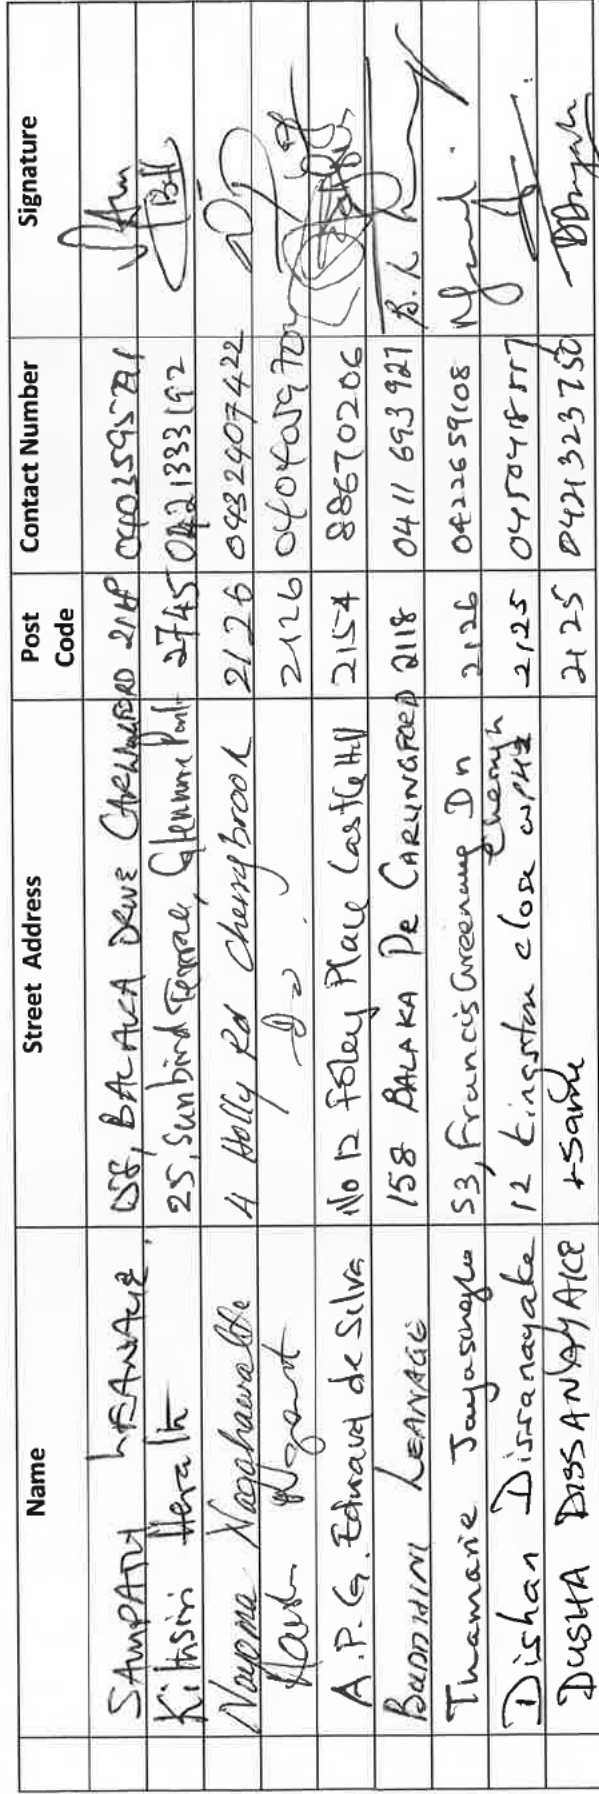 Name Street Address Post Code Contact Number Signature
SAMPATH LEANAGE 158, BALAKA DRIVE CARLINGFORD 2118
Kithsiri Herath 25, Sunbird Terrace, Glenmore Park 2745 0421333192
Nayana 4 Holly Rd Cherrybrook 2126 0432407422
Do 2126
A.P.G. Edward de Silva No 12 Foley Place Castle Hill 2154 88670206
BUDDHINI LEANAGE 158 BALAKA DR CARLINGFORD 2118 0411 693 927 B.L
Thamarie 53, Francis Greenway Dn 2126 0422659108
Dishan Dissanayake 12 Kingston close 2125
DUSHA DISSANAYAKE same 2125 0421323750